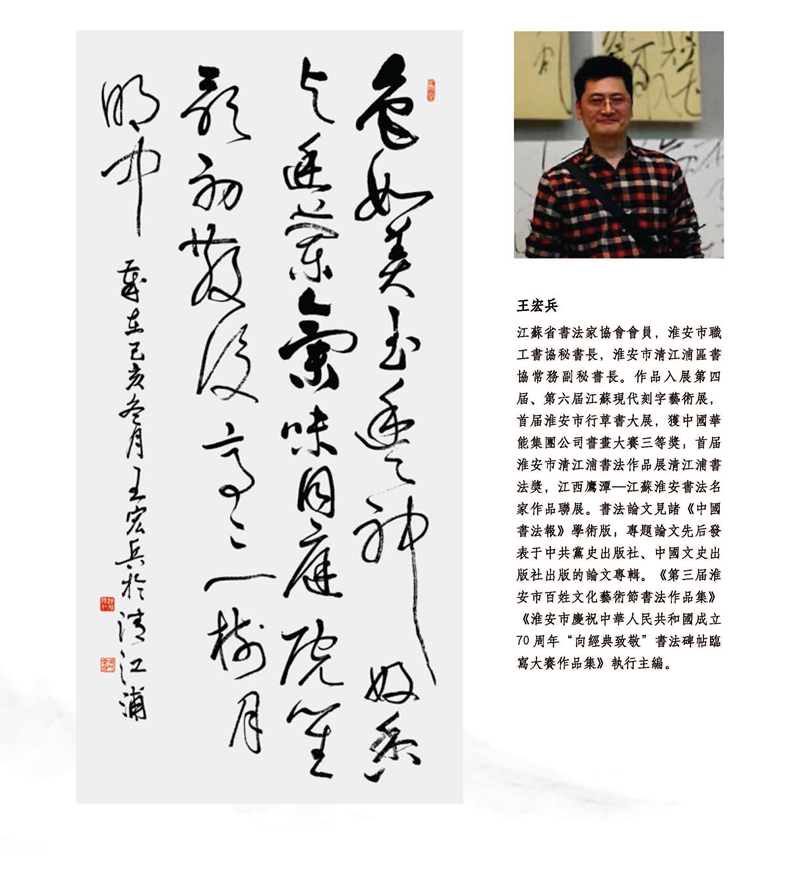 色如美玉神香
蘭氣味同庭院笙
歌初散後亭亭一樹月
明中
歲在己亥冬月王宏兵於清江浦
王宏兵
江蘇省書法家協會會員，淮安市職
工書協秘書長，淮安市清江浦區書
協常務副秘書長。作品入展第四
届、第六届江蘇現代刻字藝術展，
首届淮安市行草書大展，獲中國華
能集團公司書畫大賽三等獎；首届
淮安市清江浦書法作品展清江浦書
法獎，江西鷹潭—江蘇淮安書法名
家作品聯展。書法論文見諸《中國
書法報》學術版；專題論文先后發
表于中共黨史出版社、中國文史出
版社出版的論文專輯。《第三届淮
安市百姓文化藝術節書法作品集》
《淮安市慶祝中華人民共和國成立
70周年“向經典致敬”書法碑帖臨
寫大賽作品集》執行主編。